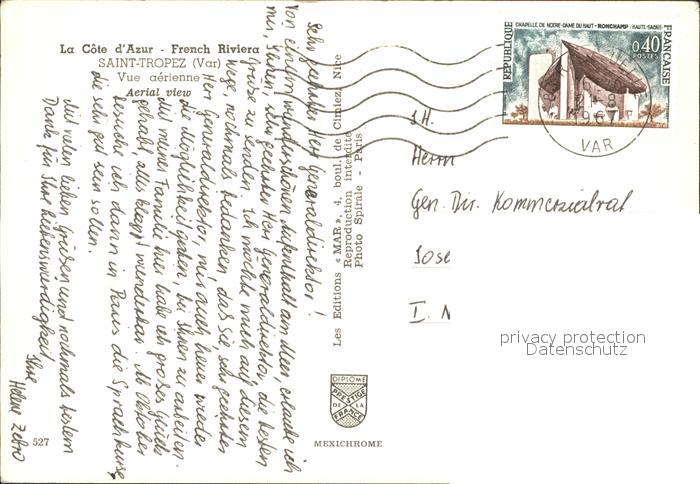 La Côte d'Azur - French Riviera
SAINT-TROPEZ (Var)
Vue aérienne
Aerial view
Sehr geehrter Herr Generaldirektor!
Von einem wunderschönen Aufenthalt am Meer, erlaube ich
mir, Ihnen, sehr geehrter Herr Generaldirektor, die besten
Grüße zu senden. Ich möchte mich auf diesem
Wege nochmals bedanken, daß Sie, sehr geehrter
Herr Generaldirektor, mir auch heuer wieder
die Möglichkeit geben, bei Ihnen zu arbeiten.
Mit meiner Familie hier habe ich großes Glück
gehabt, alles klappt wunderbar. Ab Oktober
besuche ich dann in Paris die Sprachkurse
die sehr gut sein sollen.
Mit vielen lieben Grüßen und nochmals bestem
Dank für Ihre Liebenswürdigkeit
Ihre
Helene
527
Les Editions « MAR », 4, boul. de Cimiez, Nice
Reproduction interdite
Photo Spirale - Paris
DIPLÔME
PRESTIGE
DE LA
FRANCE
MEXICHROME
RÉPUBLIQUE
FRANÇAISE
CHAPELLE DE NOTRE-DAME DU HAUT - RONCHAMP (HAUTE-SAÔNE)
0,40
POSTES
1967
VAR
S.H.
Herrn
Gen. Dir. Kommerzialrat
Jose
I. N
privacy protection
Datenschutz